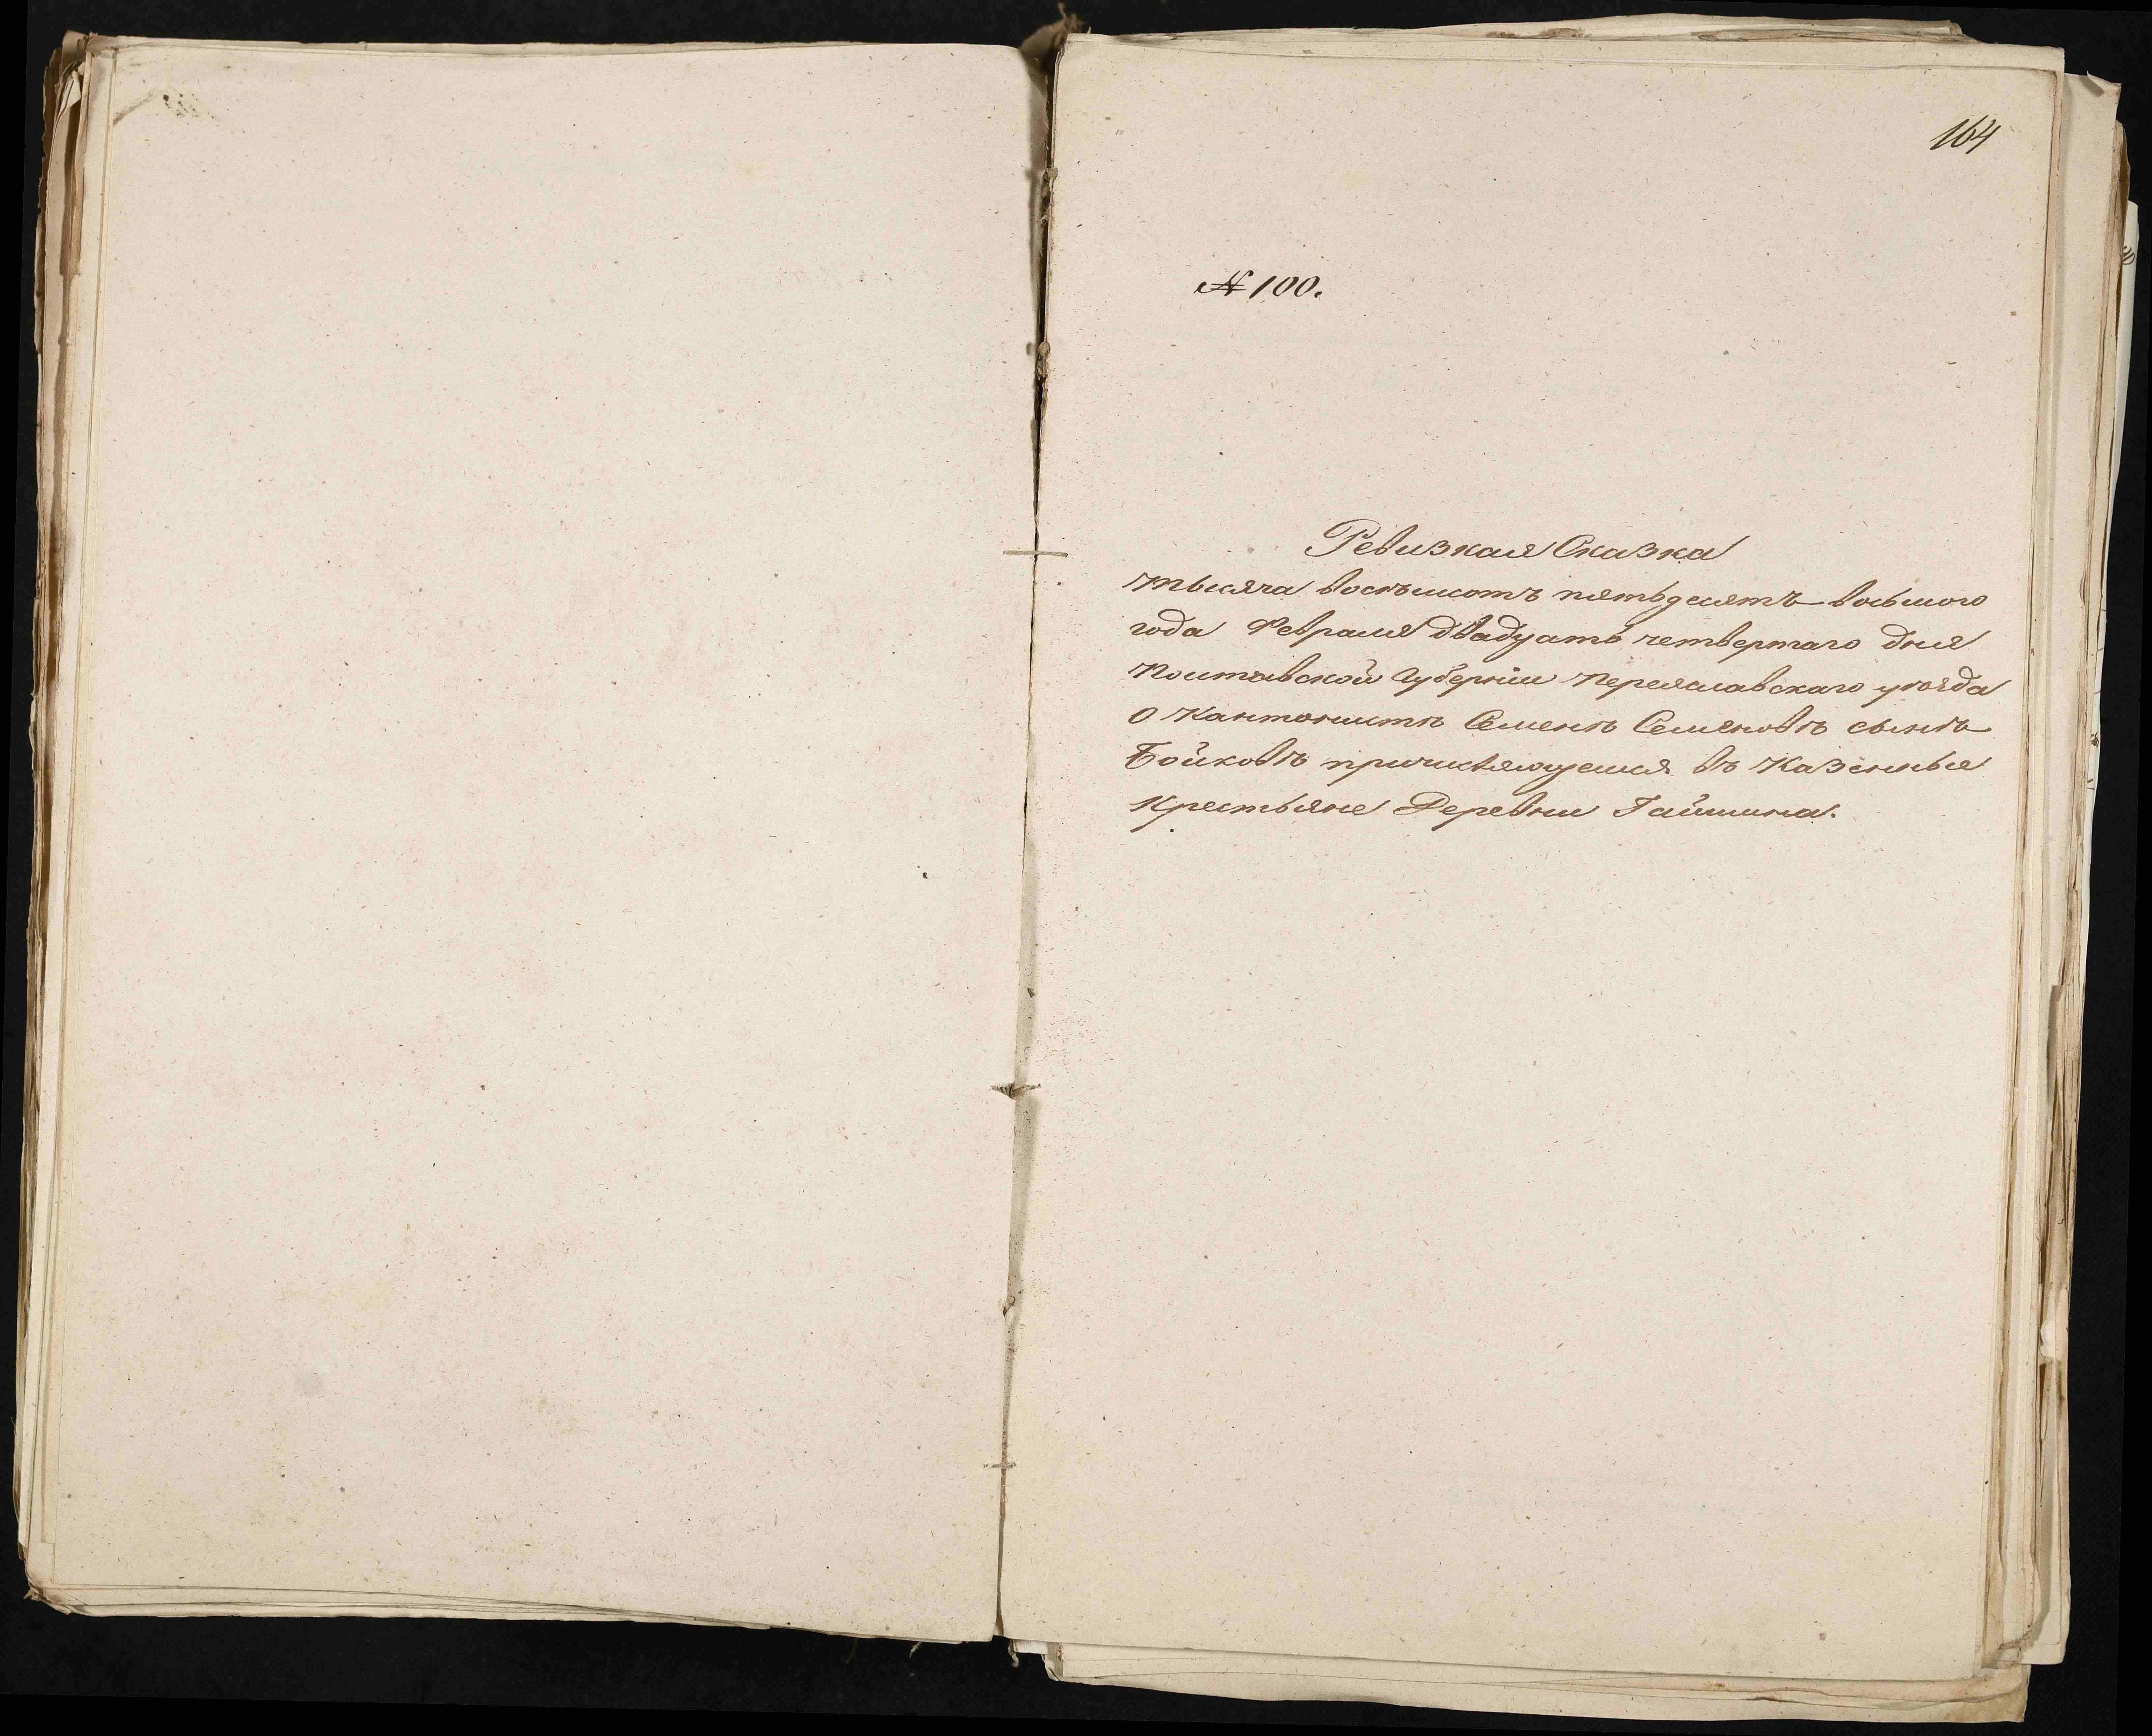 164
№ 100.
Ревизкая Сказка
тысяча восемьсотъ пятьдесятъ восьмого
года Февраля двадцать четвертаго дня
Полтавской Губерніи Переяславскаго уѣзда
О Кантонистѣ Семенѣ Семеновѣ сынѣ
Бойковѣ причисляющемся въ Казенные
Крестьяне Деревни Гайшина.